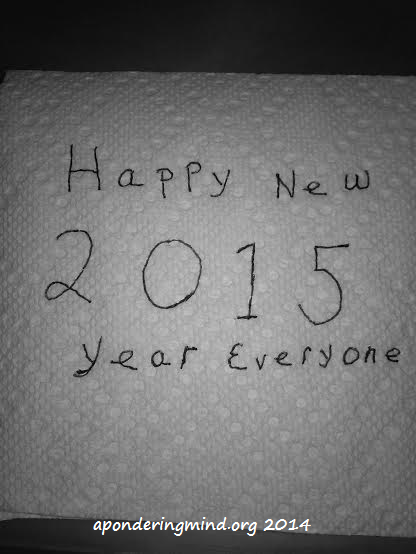 Happy New
2015
Year Everyone
aponderingmind.org 2014